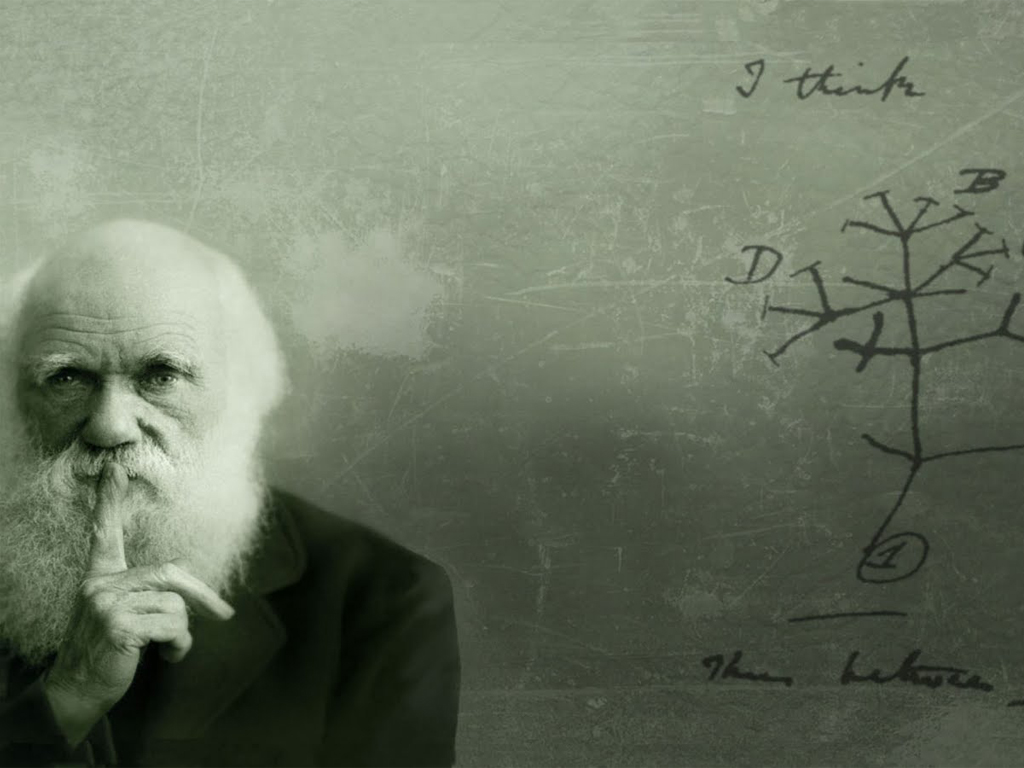 I think
B
D
1
Thus between